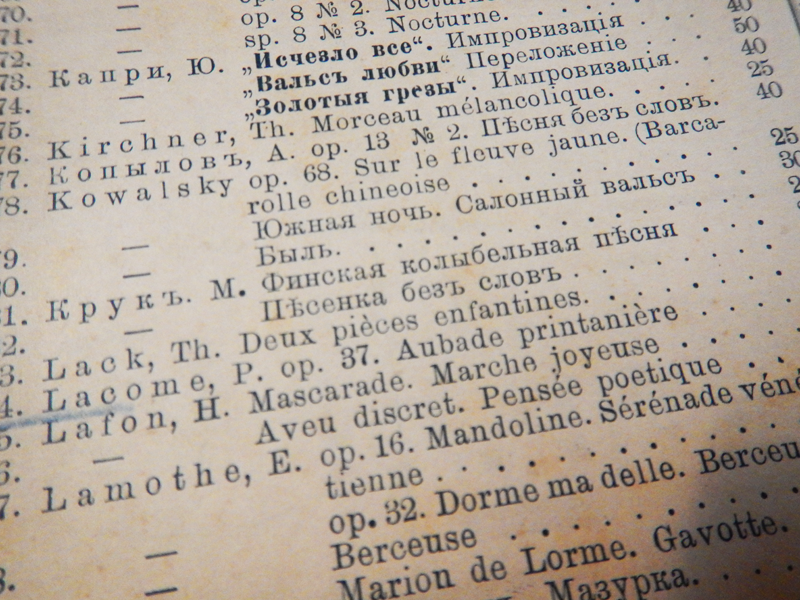 70. — op. 8 № 2. Nocturne
71. — sp. 8 № 3. Nocturne. 40
72. Капри, Ю. „Исчезло все“. Импровизація 50
73. — „Вальсъ любви“ Переложеніе 40
74. — „Золотыя грезы“. Импровизація. 25
75. Kirchner, Th. Morceau mélancolique. 40
76. Копыловъ, А. op. 13 № 2. Пѣсня безъ словъ.
77. Kowalsky op. 68. Sur le fleuve jaune. (Barca-
78. rolle chineoise 25
— Южная ночь. Салонный вальсъ 30
79. — Быль.
80. Крукъ. М. Финская колыбельная пѣсня
81. — Пѣсенка безъ словъ
2. Lack, Th. Deux pièces enfantines.
3. Lacome, P. op. 37. Aubade printanière
4. Lafon, H. Mascarade. Marche joyeuse
5. — Aveu discret. Pensée poetique
6. Lamothe, E. op. 16. Mandoline. Sérénade véné
7. tienne
— op. 32. Dorme ma delle. Berceu
Berceuse
8. — Marion de Lorme. Gavotte.
Мазурка.